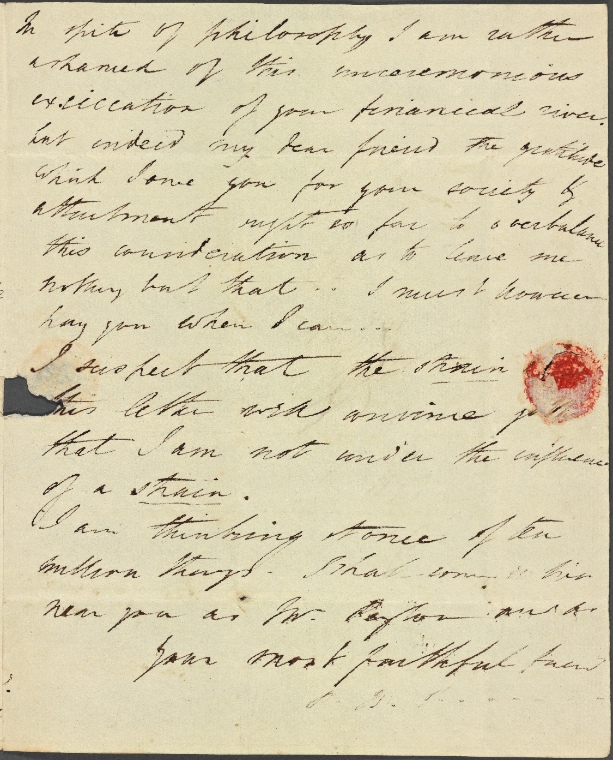 In spite of philosophy I am rather
ashamed of this unceremonious
exsiccation of your financical river.
but indeed my dear friend the gratitude
which I owe you for your society &
attachment ought so far to overbalance
this consideration as to leave me
nothing but that .. I must however
pay you when I can ...
I suspect that the strain
this letter will convince y
that I am not under the influence
of a strain.
I am thinking at once of ten
million things. I shall come to live
near you as Mr. and as
your most faithful friend
P. B. S.